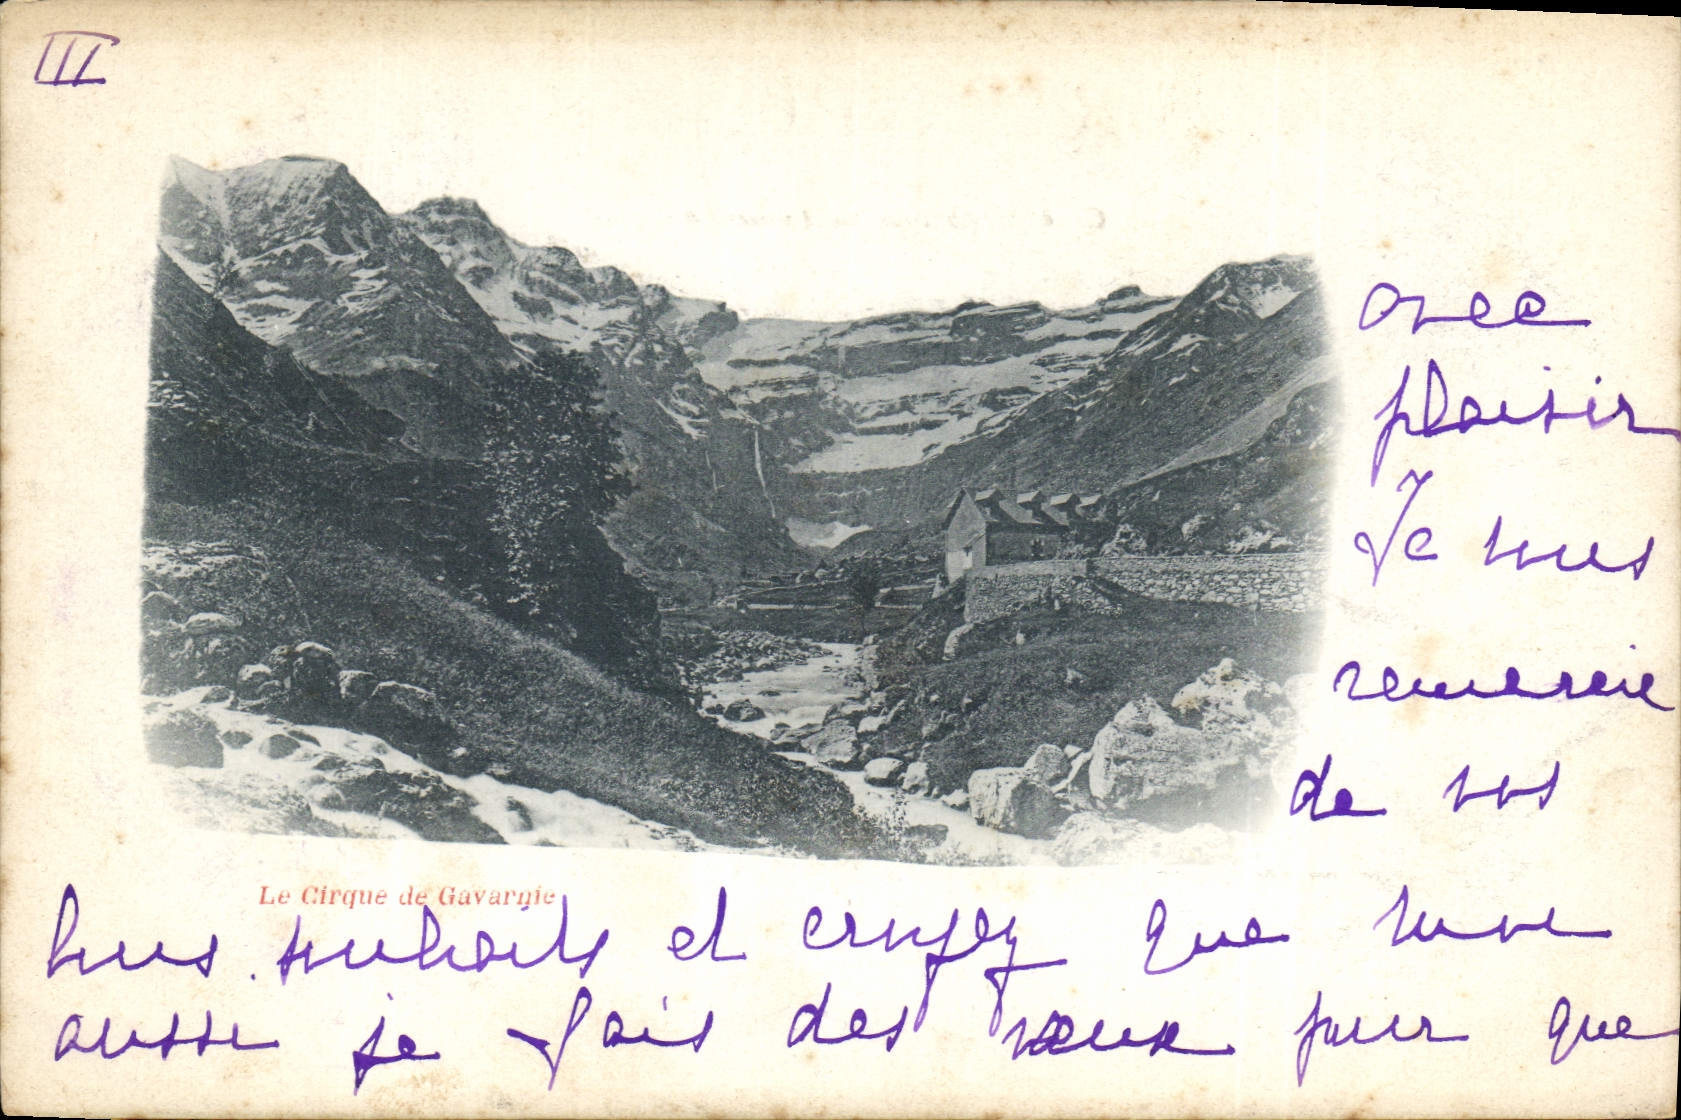 III
avec
plaisir
Je vous
remercie
de vos
Le Cirque de Gavarnie
bons souhaits et croyez que moi
aussi je fais des vœux pour que